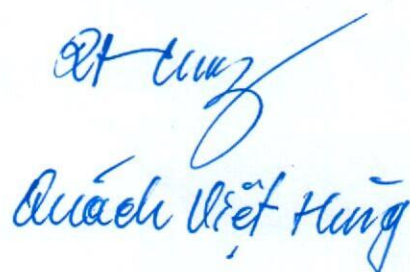 Quách Việt Hùng